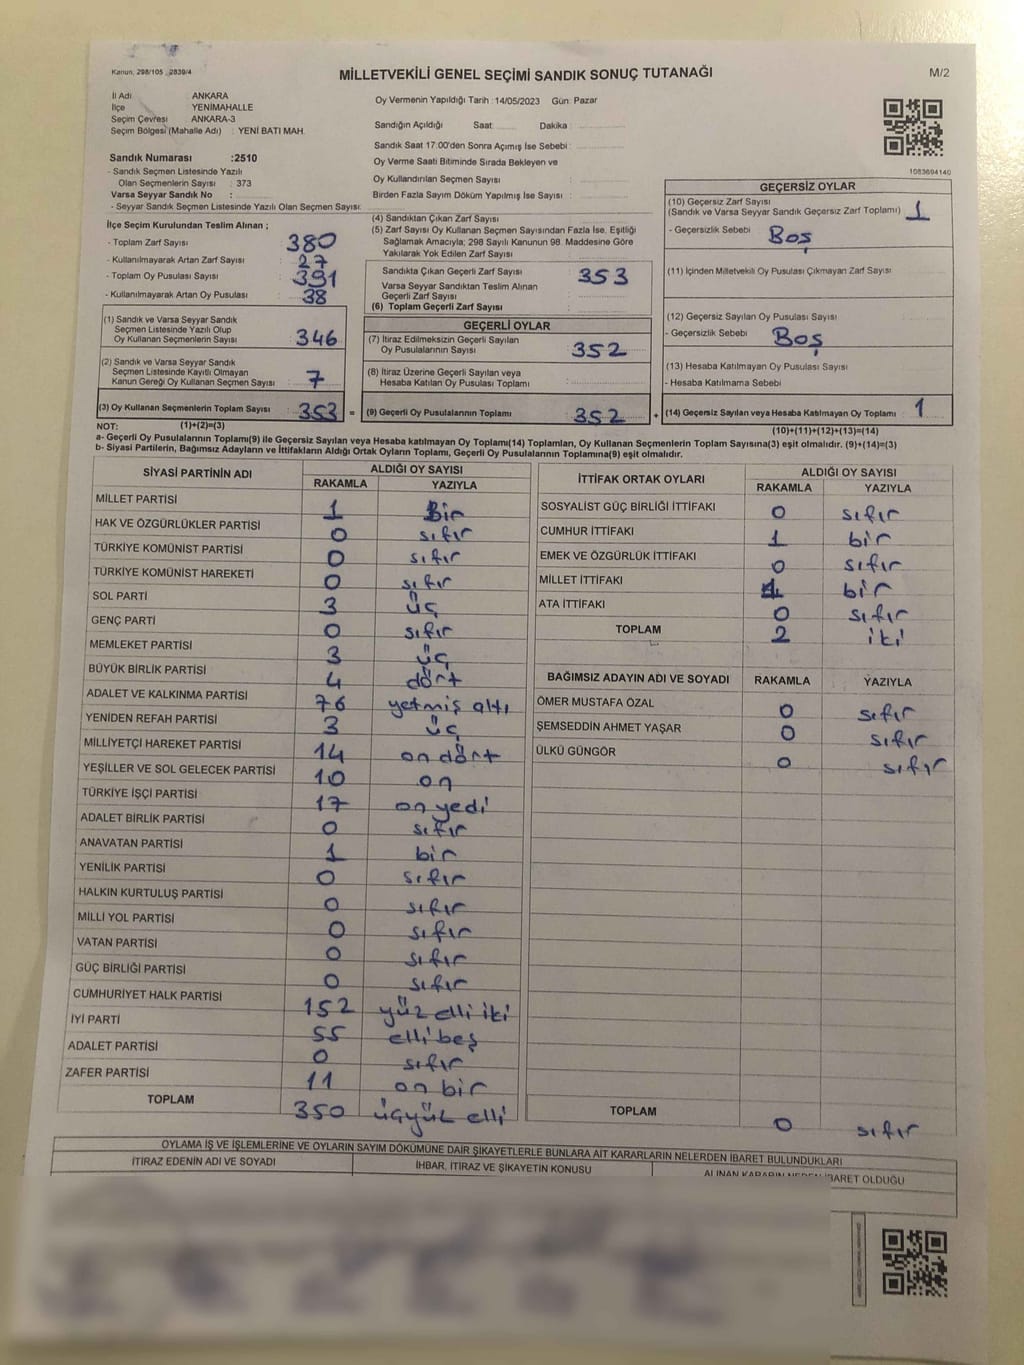 Kanun, 298/105 , 2839/4
MİLLETVEKİLİ GENEL SEÇİMİ SANDIK SONUÇ TUTANAĞI
M/2
İl Adı ANKARA
İlçe YENİMAHALLE
Seçim Çevresi ANKARA-3
Seçim Bölgesi (Mahalle Adı) : YENİ BATI MAH.
Sandık Numarası :2510
- Sandık Seçmen Listesinde Yazılı
Olan Seçmenlerin Sayısı : 373
Varsa Seyyar Sandık No :
- Seyyar Sandık Seçmen Listesinde Yazılı Olan Seçmen Sayısı:
İlçe Seçim Kurulundan Teslim Alınan ;
- Toplam Zarf Sayısı 380
- Kullanılmayarak Artan Zarf Sayısı 27
- Toplam Oy Pusulası Sayısı 391
- Kullanılmayarak Artan Oy Pusulası 38
(1) Sandık ve Varsa Seyyar Sandık
Seçmen Listesinde Yazılı Olup
Oy Kullanan Seçmenlerin Sayısı 346
(2) Sandık ve Varsa Seyyar Sandık
Seçmen Listesinde Kayıtlı Olmayan
Kanun Gereği Oy Kullanan Seçmen Sayısı 7
(3) Oy Kullanan Seçmenlerin Toplam Sayısı 353 =
(1)+(2)=(3)
Oy Vermenin Yapıldığı Tarih : 14/05/2023 Gün: Pazar
Sandığın Açıldığı Saat Dakika :
Sandık Saat 17.00'den Sonra Açımış İse Sebebi :
Oy Verme Saati Bitiminde Sırada Bekleyen ve
Oy Kullandırılan Seçmen Sayısı :
Birden Fazla Sayım Döküm Yapılmış İse Sayısı :
(4) Sandıktan Çıkan Zarf Sayısı
(5) Zarf Sayısı Oy Kullanan Seçmen Sayısından Fazla İse, Eşitliği
Sağlamak Amacıyla; 298 Sayılı Kanunun 98. Maddesine Göre
Yakılarak Yok Edilen Zarf Sayısı
Sandıkta Çıkan Geçerli Zarf Sayısı 353
Varsa Seyyar Sandıktan Teslim Alınan
Geçerli Zarf Sayısı
(6) Toplam Geçerli Zarf Sayısı
GEÇERLİ OYLAR
(7) İtiraz Edilmeksizin Geçerli Sayılan
Oy Pusulalarının Sayısı 352
(8) İtiraz Üzerine Geçerli Sayılan veya
Hesaba Katılan Oy Pusulası Toplamı
(9) Geçerli Oy Pusulalarının Toplamı 352 +
1083694140
GEÇERSİZ OYLAR
(10) Geçersiz Zarf Sayısı
(Sandık ve Varsa Seyyar Sandık Geçersiz Zarf Toplamı) 1
- Geçersizlik Sebebi Boş
(11) İçinden Milletvekili Oy Pusulası Çıkmayan Zarf Sayısı
(12) Geçersiz Sayılan Oy Pusulası Sayısı
- Geçersizlik Sebebi Boş
(13) Hesaba Katılmayan Oy Pusulası Sayısı
- Hesaba Katılmama Sebebi
(14) Geçersiz Sayılan veya Hesaba Katılmayan Oy Toplamı 1
(10)+(11)+(12)+(13)=(14)
NOT:
a- Geçerli Oy Pusulalarının Toplamı(9) ile Geçersiz Sayılan veya Hesaba katılmayan Oy Toplamı(14) Toplamları, Oy Kullanan Seçmenlerin Toplam Sayısına(3) eşit olmalıdır. (9)+(14)=(3)
b- Siyasi Partilerin, Bağımsız Adayların ve İttifakların Aldığı Ortak Oyların Toplamı, Geçerli Oy Pusulalarının Toplamına(9) eşit olmalıdır.
SİYASİ PARTİNİN ADI ALDIĞI OY SAYISI
RAKAMLA YAZIYLA
MİLLET PARTİSİ 1 Bir
HAK VE ÖZGÜRLÜKLER PARTİSİ 0 sıfır
TÜRKİYE KOMÜNİST PARTİSİ 0 sıfır
TÜRKİYE KOMÜNİST HAREKETİ 0 sıfır
SOL PARTİ 3 üç
GENÇ PARTİ 0 sıfır
MEMLEKET PARTİSİ 3 üç
BÜYÜK BİRLİK PARTİSİ 4 dört
ADALET VE KALKINMA PARTİSİ 76 yetmiş altı
YENİDEN REFAH PARTİSİ 3 üç
MİLLİYETÇİ HAREKET PARTİSİ 14 on dört
YEŞİLLER VE SOL GELECEK PARTİSİ 10 on
TÜRKİYE İŞÇİ PARTİSİ 17 on yedi
ADALET BİRLİK PARTİSİ 0 sıfır
ANAVATAN PARTİSİ 1 bir
YENİLİK PARTİSİ 0 sıfır
HALKIN KURTULUŞ PARTİSİ 0 sıfır
MİLLİ YOL PARTİSİ 0 sıfır
VATAN PARTİSİ 0 sıfır
GÜÇ BİRLİĞİ PARTİSİ 0 sıfır
CUMHURİYET HALK PARTİSİ 152 yüz elli iki
İYİ PARTİ 55 elli beş
ADALET PARTİSİ 0 sıfır
ZAFER PARTİSİ 11 on bir
TOPLAM 350 üçyüz elli
İTTİFAK ORTAK OYLARI ALDIĞI OY SAYISI
RAKAMLA YAZIYLA
SOSYALİST GÜÇ BİRLİĞİ İTTİFAKI 0 sıfır
CUMHUR İTTİFAKI 1 bir
EMEK VE ÖZGÜRLÜK İTTİFAKI 0 sıfır
MİLLET İTTİFAKI 1 bir
ATA İTTİFAKI 0 sıfır
TOPLAM 2 iki
BAĞIMSIZ ADAYIN ADI VE SOYADI RAKAMLA YAZIYLA
ÖMER MUSTAFA ÖZAL 0 sıfır
ŞEMSEDDİN AHMET YAŞAR 0 sıfır
ÜLKÜ GÜNGÖR 0 sıfır
TOPLAM 0 sıfır
OYLAMA İŞ VE İŞLEMLERİNE VE OYLARIN SAYIM DÖKÜMÜNE DAİR ŞİKAYETLERLE BUNLARA AİT KARARLARIN NELERDEN İBARET BULUNDUKLARI
İTİRAZ EDENİN ADI VE SOYADI İHBAR, İTİRAZ VE ŞİKAYETİN KONUSU ALINAN KARARIN NEDEN İBARET OLDUĞU